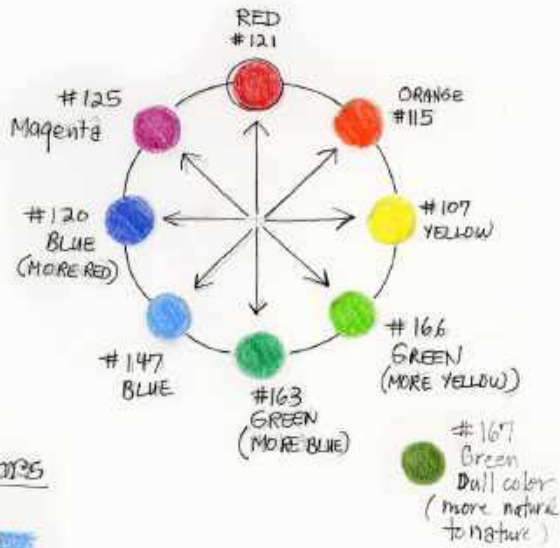 RED
#121
ORANGE
#115
#107
YELLOW
#166
GREEN
(MORE YELLOW)
#163
GREEN
(MORE BLUE)
#147
BLUE
#120
BLUE
(MORE RED)
#125
Magenta
#167
Green
Dull color
(more nature
to nature)